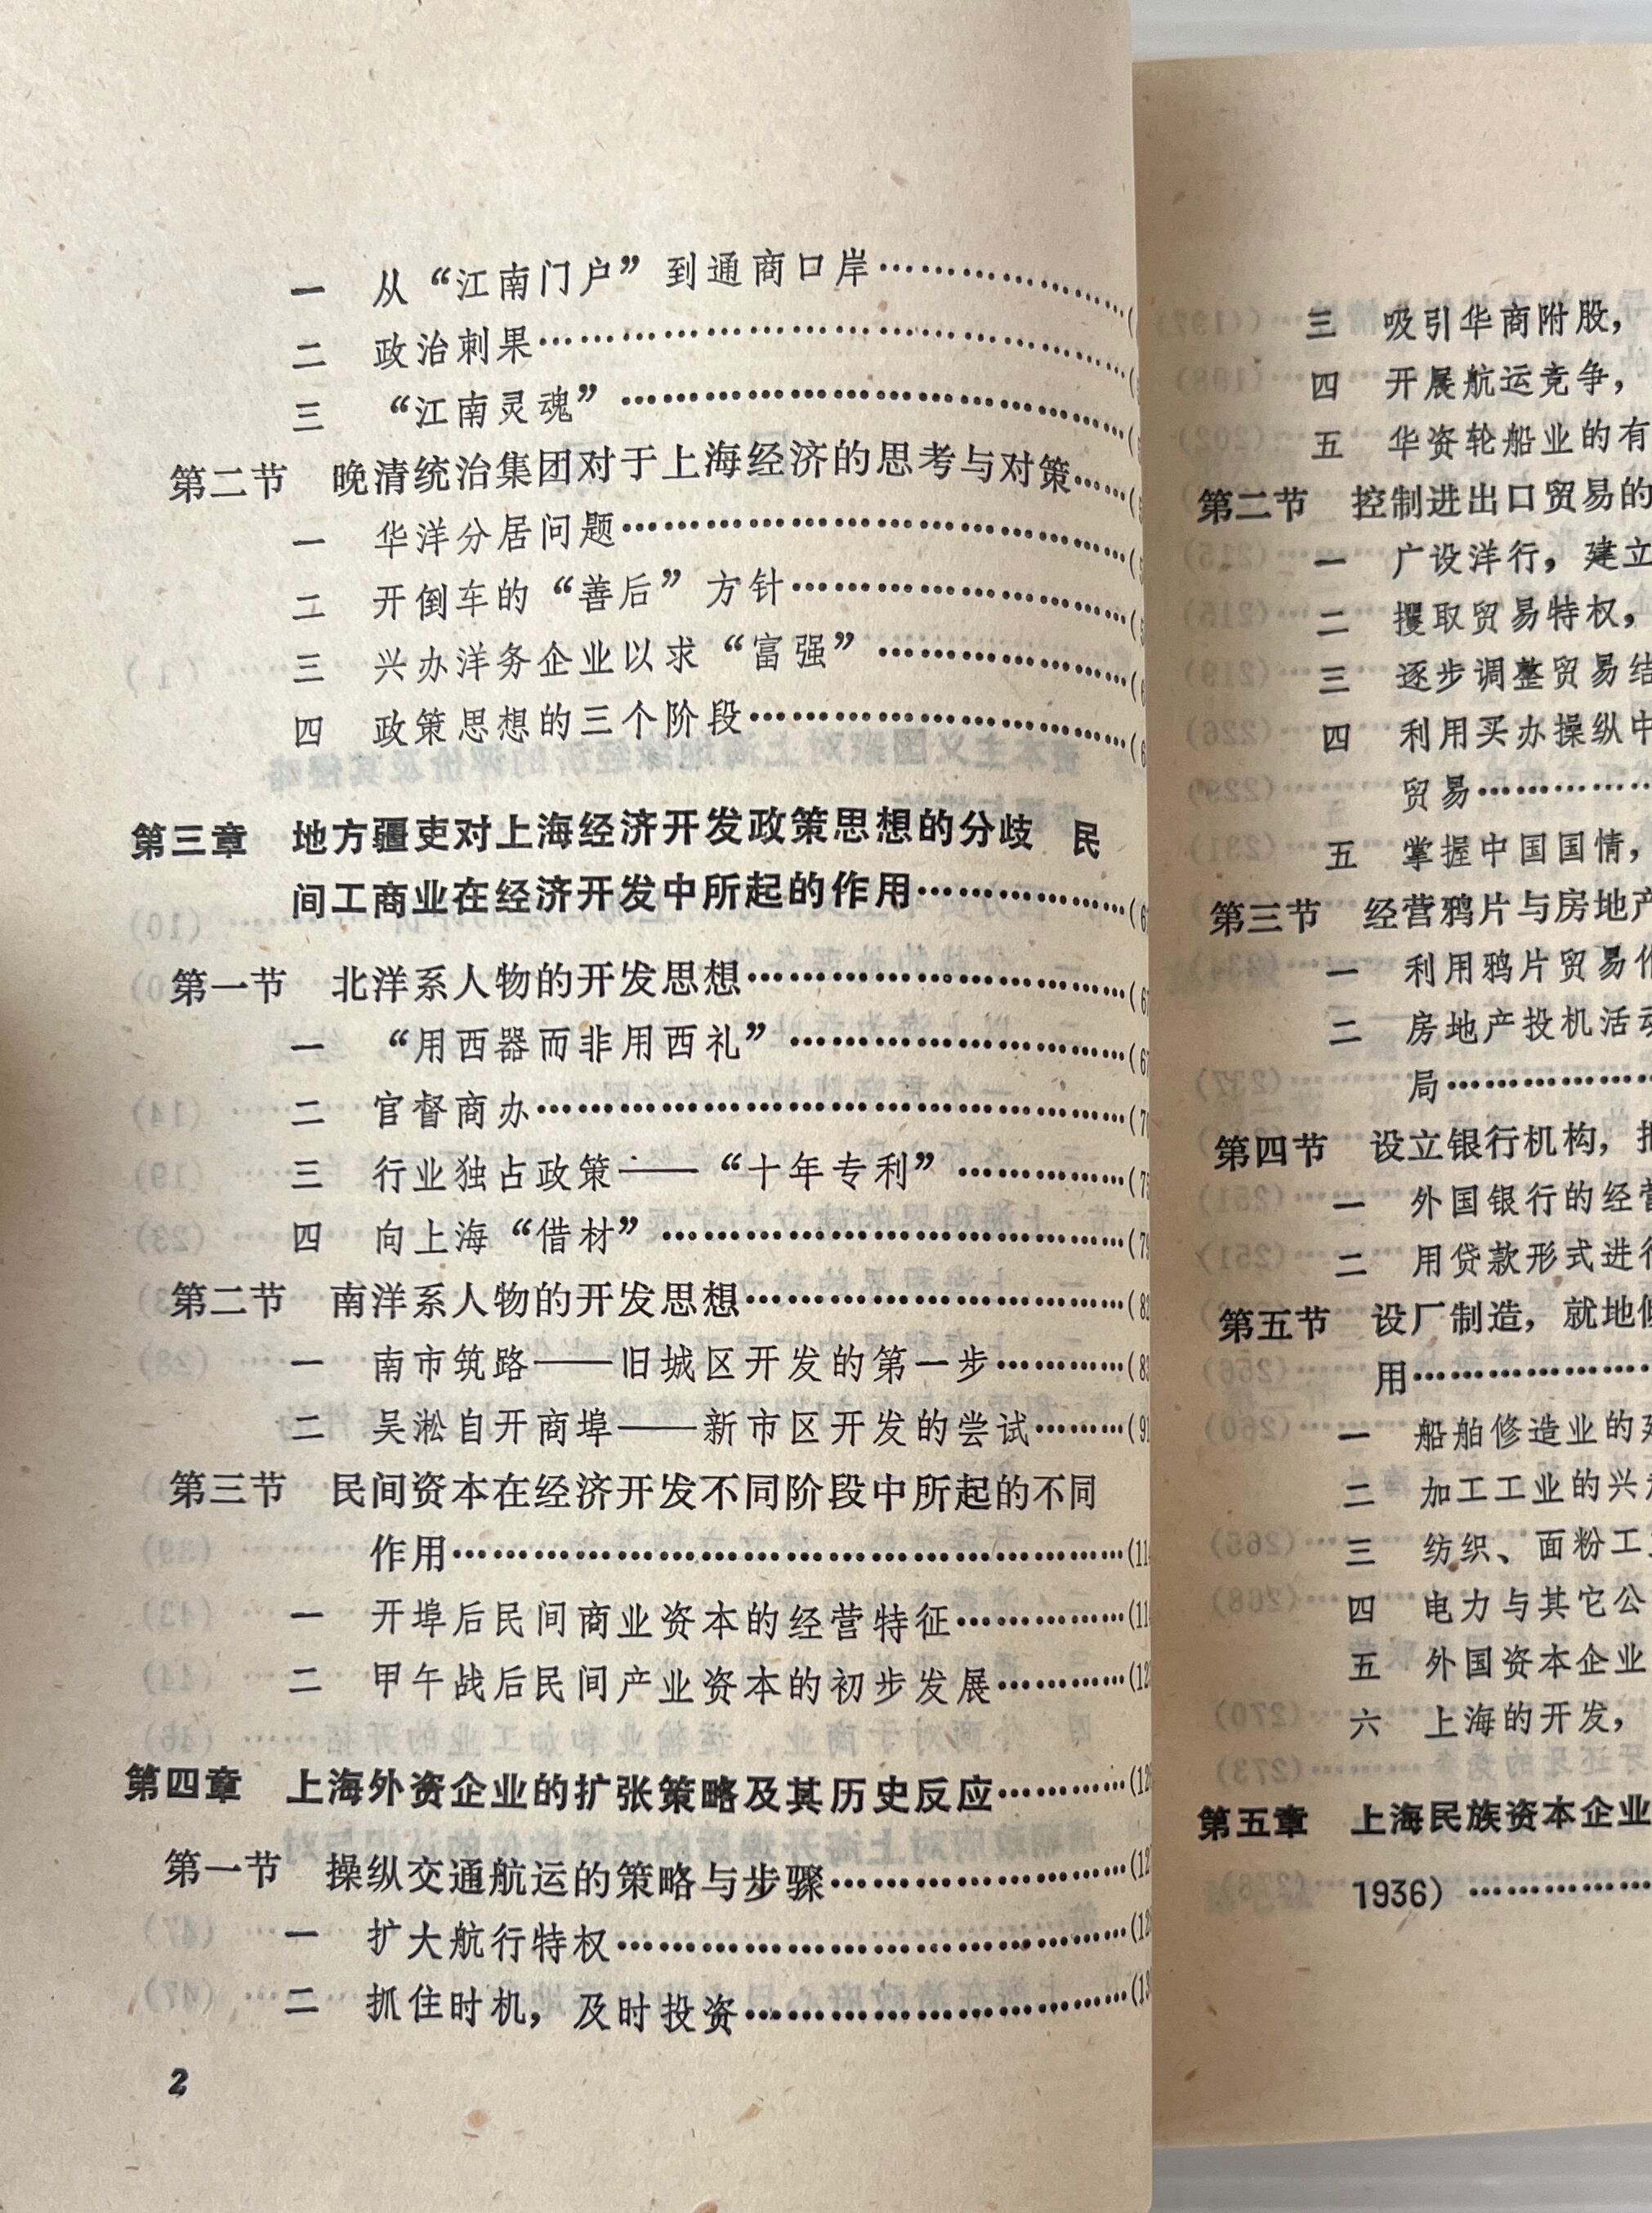 一 从“江南门户”到通商口岸……………………(
二 政治刺果……………………………………(
三 “江南灵魂”………………………………(
第二节 晚清统治集团对于上海经济的思考与对策……(
一 华洋分居问题………………………………(
二 开倒车的“善后”方针……………………(
三 兴办洋务企业以求“富强”………………(
四 政策思想的三个阶段………………………(6
第三章 地方疆吏对上海经济开发政策思想的分歧 民
间工商业在经济开发中所起的作用……………(6
第一节 北洋系人物的开发思想……………………(6
一 “用西器而非用西礼”……………………(67
二 官督商办……………………………………(7
三 行业独占政策——“十年专利”…………(7
四 向上海“借材”……………………………(79
第二节 南洋系人物的开发思想……………………(8
一 南市筑路——旧城区开发的第一步………(8
二 吴淞自开商埠——新市区开发的尝试……(91
第三节 民间资本在经济开发不同阶段中所起的不同
作用……………………………………………(11
一 开埠后民间商业资本的经营特征…………(11
二 甲午战后民间产业资本的初步发展………(12
第四章 上海外资企业的扩张策略及其历史反应………(12
第一节 操纵交通航运的策略与步骤………………(12
一 扩大航行特权………………………………(12
二 抓住时机，及时投资………………………(13
2
三 吸引华商附股，
四 开展航运竞争，
五 华资轮船业的有
第二节 控制进出口贸易的
一 广设洋行，建立
二 攫取贸易特权，
三 逐步调整贸易结
四 利用买办操纵中
贸易……………
五 掌握中国国情，
第三节 经营鸦片与房地产
一 利用鸦片贸易作
二 房地产投机活动
局………………
第四节 设立银行机构，
一 外国银行的经营
二 用贷款形式进行
第五节 设厂制造，就地
用…………………
一 船舶修造业的
二 加工工业的兴
三 纺织、面粉工
四 电力与其它公
五 外国资本企业
六 上海的开发，
第五章 上海民族资本企业
1936）……………